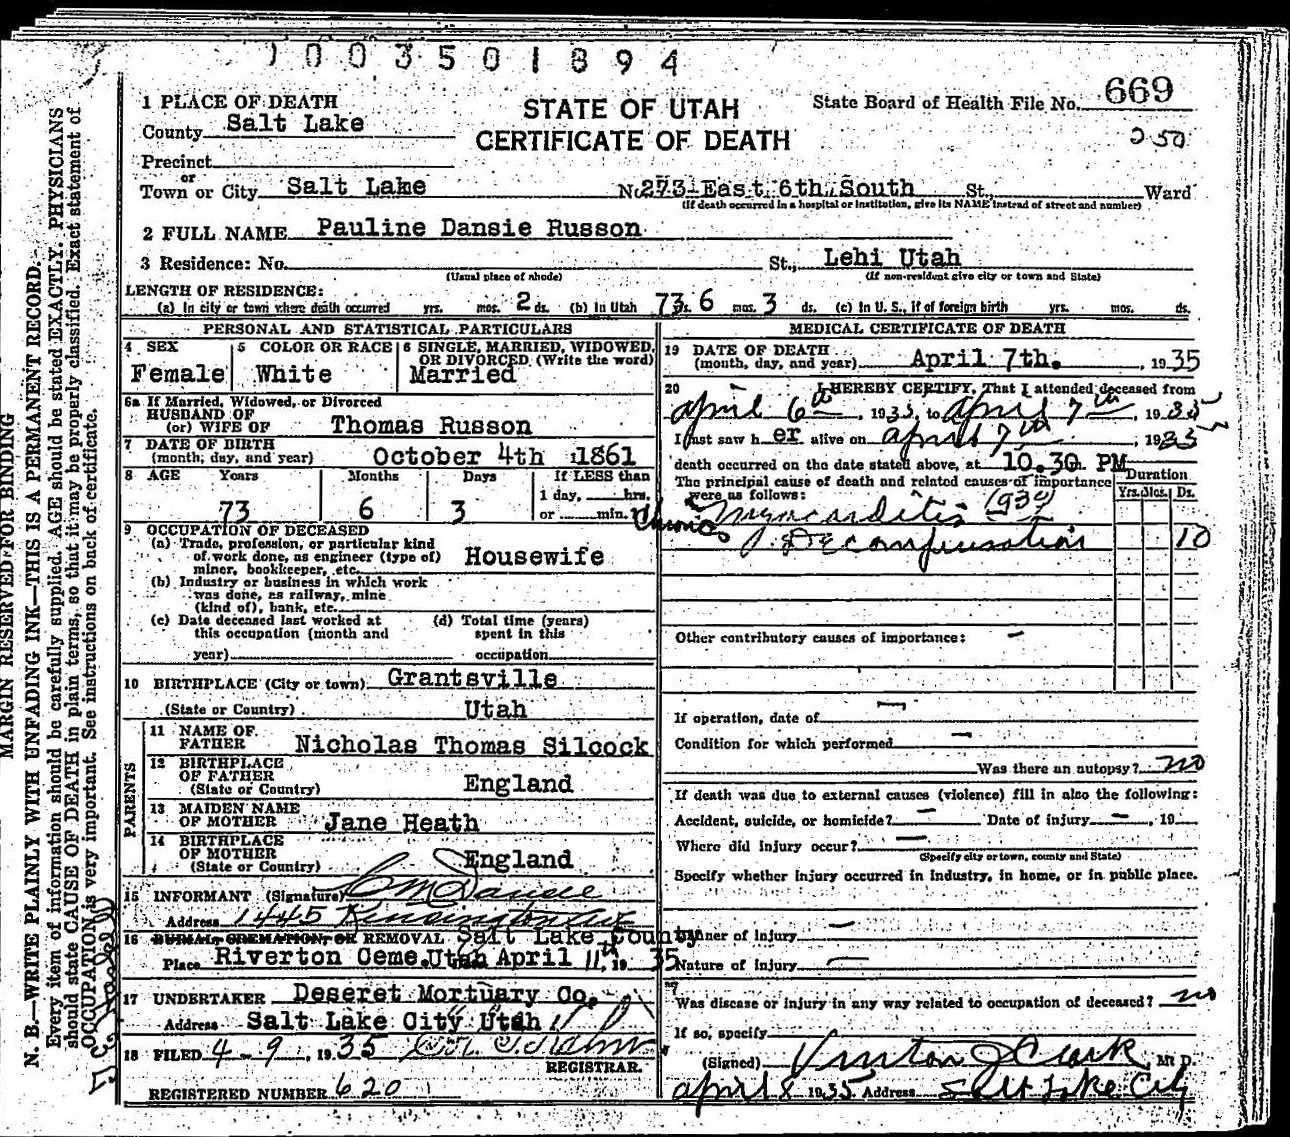 1003501894
1 PLACE OF DEATH
STATE OF UTAH
CERTIFICATE OF DEATH
State Board of Health File No. 669
County Salt Lake
250
Precinct
or
Town or City Salt Lake No. 273 East 6th South St., Ward
(If death occurred in a hospital or institution, give its NAME instead of street and number)
2 FULL NAME Pauline Dansie Russon
3 Residence: No. St., Lehi Utah
(Usual place of abode) (If non-resident give city or town and State)
LENGTH OF RESIDENCE:
(a) In city or town where death occurred yrs. mos. 2 ds. (b) In Utah 73 yrs. 6 mos. 3 ds. (c) In U. S., if of foreign birth yrs. mos. ds.
PERSONAL AND STATISTICAL PARTICULARS
4 SEX
Female
5 COLOR OR RACE
White
6 SINGLE, MARRIED, WIDOWED,
OR DIVORCED (Write the word)
Married
6a If Married, Widowed, or Divorced
HUSBAND OF
(or) WIFE OF Thomas Russon
7 DATE OF BIRTH
(month, day, and year) October 4th 1861
8 AGE Years Months Days If LESS than
1 day, hrs.
or min.
73 6 3
9 OCCUPATION OF DECEASED
(a) Trade, profession, or particular kind
of work done, as engineer (type of)
miner, bookkeeper, etc. Housewife
(b) Industry or business in which work
was done, as railway, mine
(kind of), bank, etc.
(c) Date deceased last worked at
this occupation (month and
year)
(d) Total time (years)
spent in this
occupation
10 BIRTHPLACE (City or town) Grantsville
(State or Country) Utah
PARENTS
11 NAME OF
FATHER Nicholas Thomas Silcock
12 BIRTHPLACE
OF FATHER
(State or Country) England
13 MAIDEN NAME
OF MOTHER Jane Heath
14 BIRTHPLACE
OF MOTHER
(State or Country) England
15 INFORMANT (Signature) C M Dansie
Address 1445 Kensington Ave
16 BURIAL, CREMATION, OR REMOVAL Salt Lake County
Place Riverton Ceme. Utah April 11th, 1935
17 UNDERTAKER Deseret Mortuary Co.
Address Salt Lake City Utah
18 FILED 4-9, 1935
REGISTRAR.
REGISTERED NUMBER 620
MEDICAL CERTIFICATE OF DEATH
19 DATE OF DEATH
(month, day, and year) April 7th. , 1935
20 I HEREBY CERTIFY, That I attended deceased from
April 6th , 1935, to April 7th , 1935
I last saw her alive on April 7th , 1935
death occurred on the date stated above, at 10.30. PM
The principal cause of death and related causes of importance
were as follows:
Duration
Yrs. Mos. Ds.
Chronic Myocarditis (934)
Decompensation 10
Other contributory causes of importance: -
If operation, date of -
Condition for which performed -
Was there an autopsy? no
If death was due to external causes (violence) fill in also the following:
Accident, suicide, or homicide? - Date of injury - , 19
Where did injury occur? -
(Specify city or town, county and State)
Specify whether injury occurred in industry, in home, or in public place.
Manner of injury -
Nature of injury -
Was disease or injury in any way related to occupation of deceased? no
If so, specify
(Signed) Vinton J Clark M. D.
April 8 1935. Address Salt Lake City
MARGIN RESERVED FOR BINDING
N. B.—WRITE PLAINLY WITH UNFADING INK—THIS IS A PERMANENT RECORD.
Every item of information should be carefully supplied. AGE should be stated EXACTLY. PHYSICIANS
should state CAUSE OF DEATH in plain terms, so that it may be properly classified. Exact statement of
OCCUPATION is very important. See instructions on back of certificate.